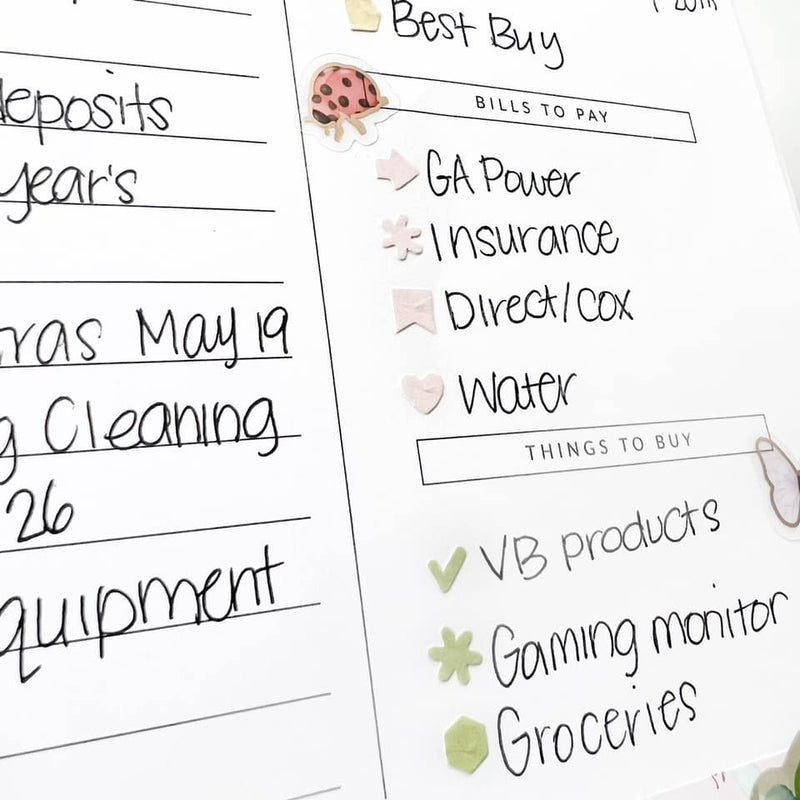 deposits
year's
May 19
Cleaning
26
Best Buy
BILLS TO PAY
GA Power
Insurance
Direct/Cox
Water
THINGS TO BUY
VB products
Gaming monitor
Groceries